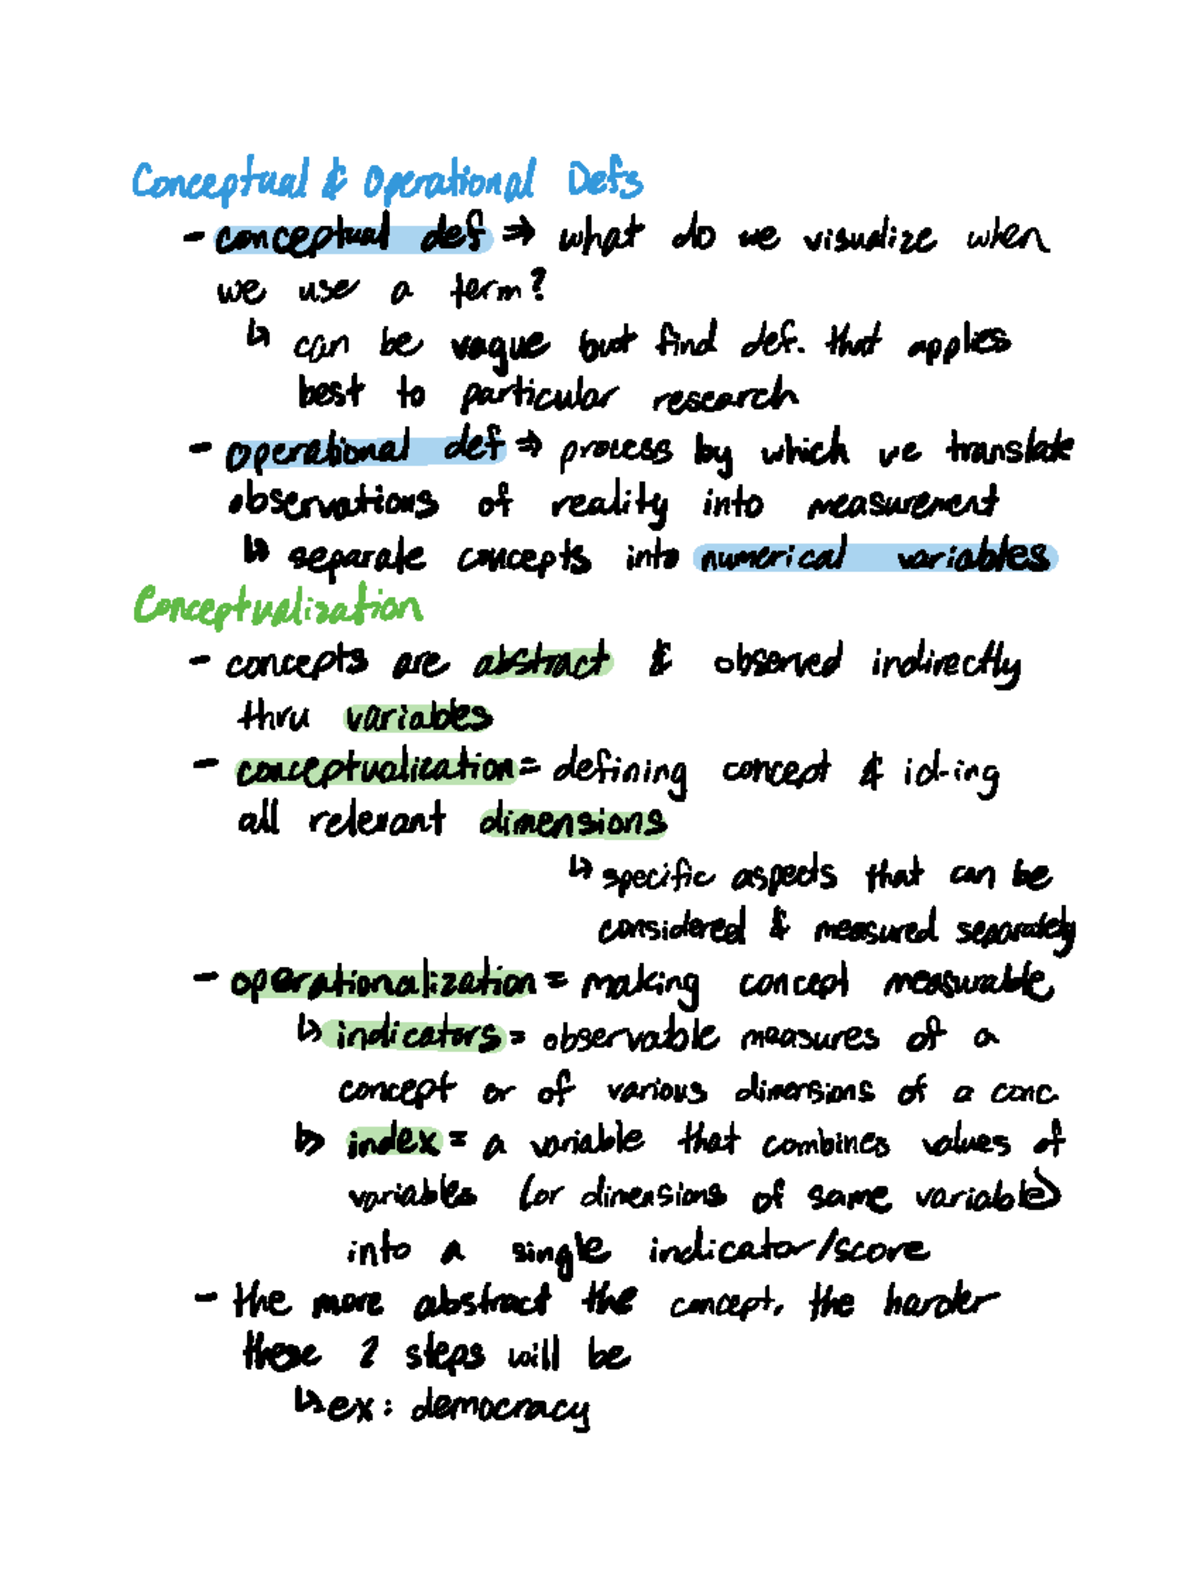 Conceptual & Operational Defs
- conceptual def ⇒ what do we visualize when
we use a term?
↳ can be vague but find def. that applies
best to particular research
- operational def ⇒ process by which we translate
observations of reality into measurement
↳ separate concepts into numerical variables
Conceptualization
- concepts are abstract & observed indirectly
thru variables
- conceptualization = defining concept & id-ing
all relevant dimensions
↳ specific aspects that can be
considered & measured separately
- operationalization = making concept measurable
↳ indicators = observable measures of a
concept or of various dimensions of a conc.
↳ index = a variable that combines values of
variables (or dimensions of same variable)
into a single indicator/score
- the more abstract the concept, the harder
these 2 steps will be
↳ ex: democracy